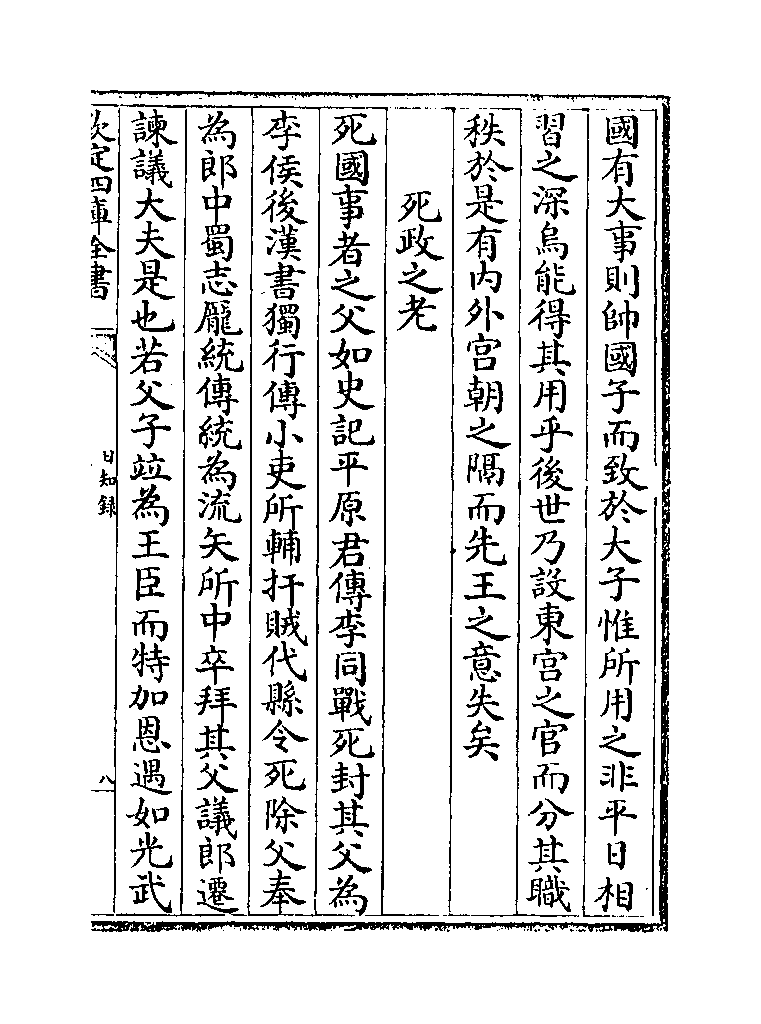 國有大事則帥國子而致於大子惟所用之非平日相
習之深烏能得其用乎後世乃設東宫之官而分其職
秩於是有内外宫朝之隔而先王之意失矣
死政之老
死國事者之父如史記平原君傳李同戰死封其父為
李侯後漢書獨行傳小吏所輔扞賊代縣令死除父奉
為郎中蜀志龎統傳統為流矢所中卒拜其父議郎遷
諫議大夫是也若父子竝為王臣而特加恩遇如光武
欽定四庫全書
日知録
八